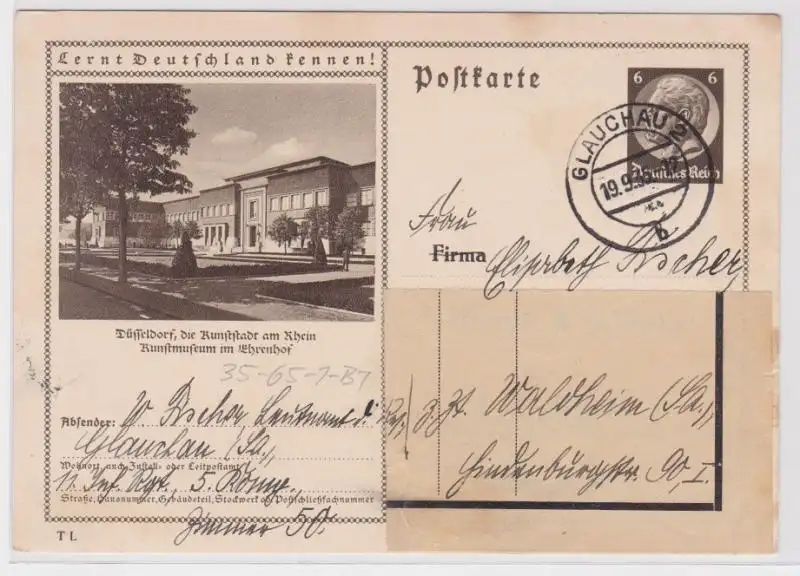 Lernt Deutschland kennen!
Düsseldorf, die Kunststadt am Rhein
Kunstmuseum im Ehrenhof
35-65-1-B7
Absender: W. Discher, Leutnant d. Res.,
Glauchau (Sa.,
Wohnort, auch Zustell- oder Leitpostamt
11. Inf. Rgt., 5. Komp.,
Straße, Hausnummer, Gebäudeteil, Stockwerk od. Postschließfachnummer
Zimmer 50.
T L
Postkarte
6 6
Deutsches Reich
GLAUCHAU 2
19.9.
b
Frau
Firma Elisabeth Discher,
z. Zt. Waldheim (Sa.,
Hindenburgstr. 90, I.